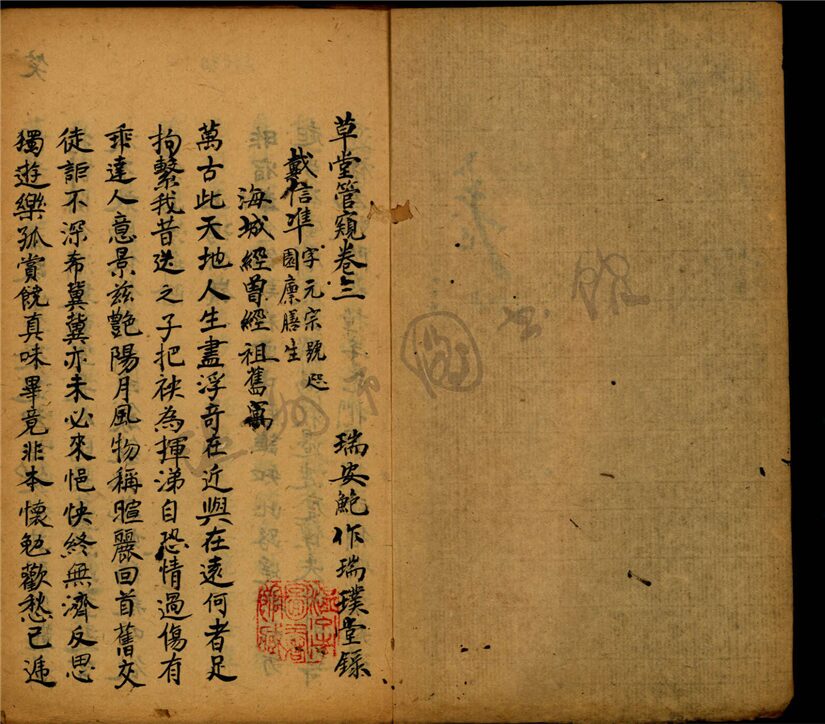 草堂管窺卷三
瑞安鮑作瑞璞堂錄
戴信準 字元宗號
園廩膳生
海城經曾經祖舊寓
萬古此天地人生盡浮奇在近與在遠何者足
拘繫我昔送之子把袂為揮涕自恐情過傷有
乖達人意景茲艷陽月風物稱暄麗回首舊交
徒詎不深希冀冀亦未必來悒怏終無濟反思
獨遊樂孤賞饒真味畢竟非本懷勉歡愁已遞